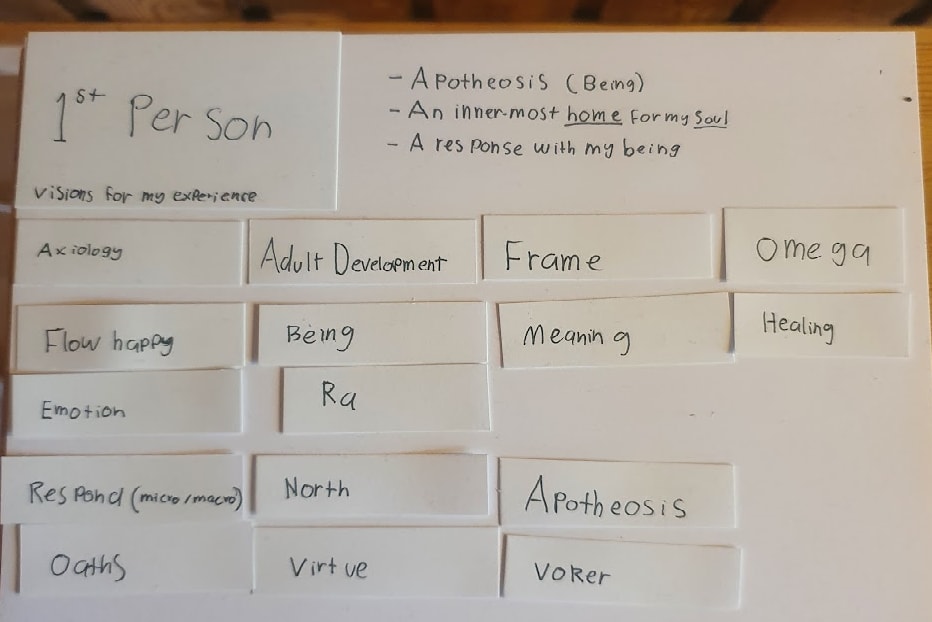 1st Person
visions for my experience
- Apotheosis (Being)
- An inner-most home for my soul
- A response with my being
Axiology
Adult Development
Frame
Omega
Flow happy
Being
Meaning
Healing
Emotion
Ra
Respond (micro/macro)
North
Apotheosis
Oaths
Virtue
VOKER